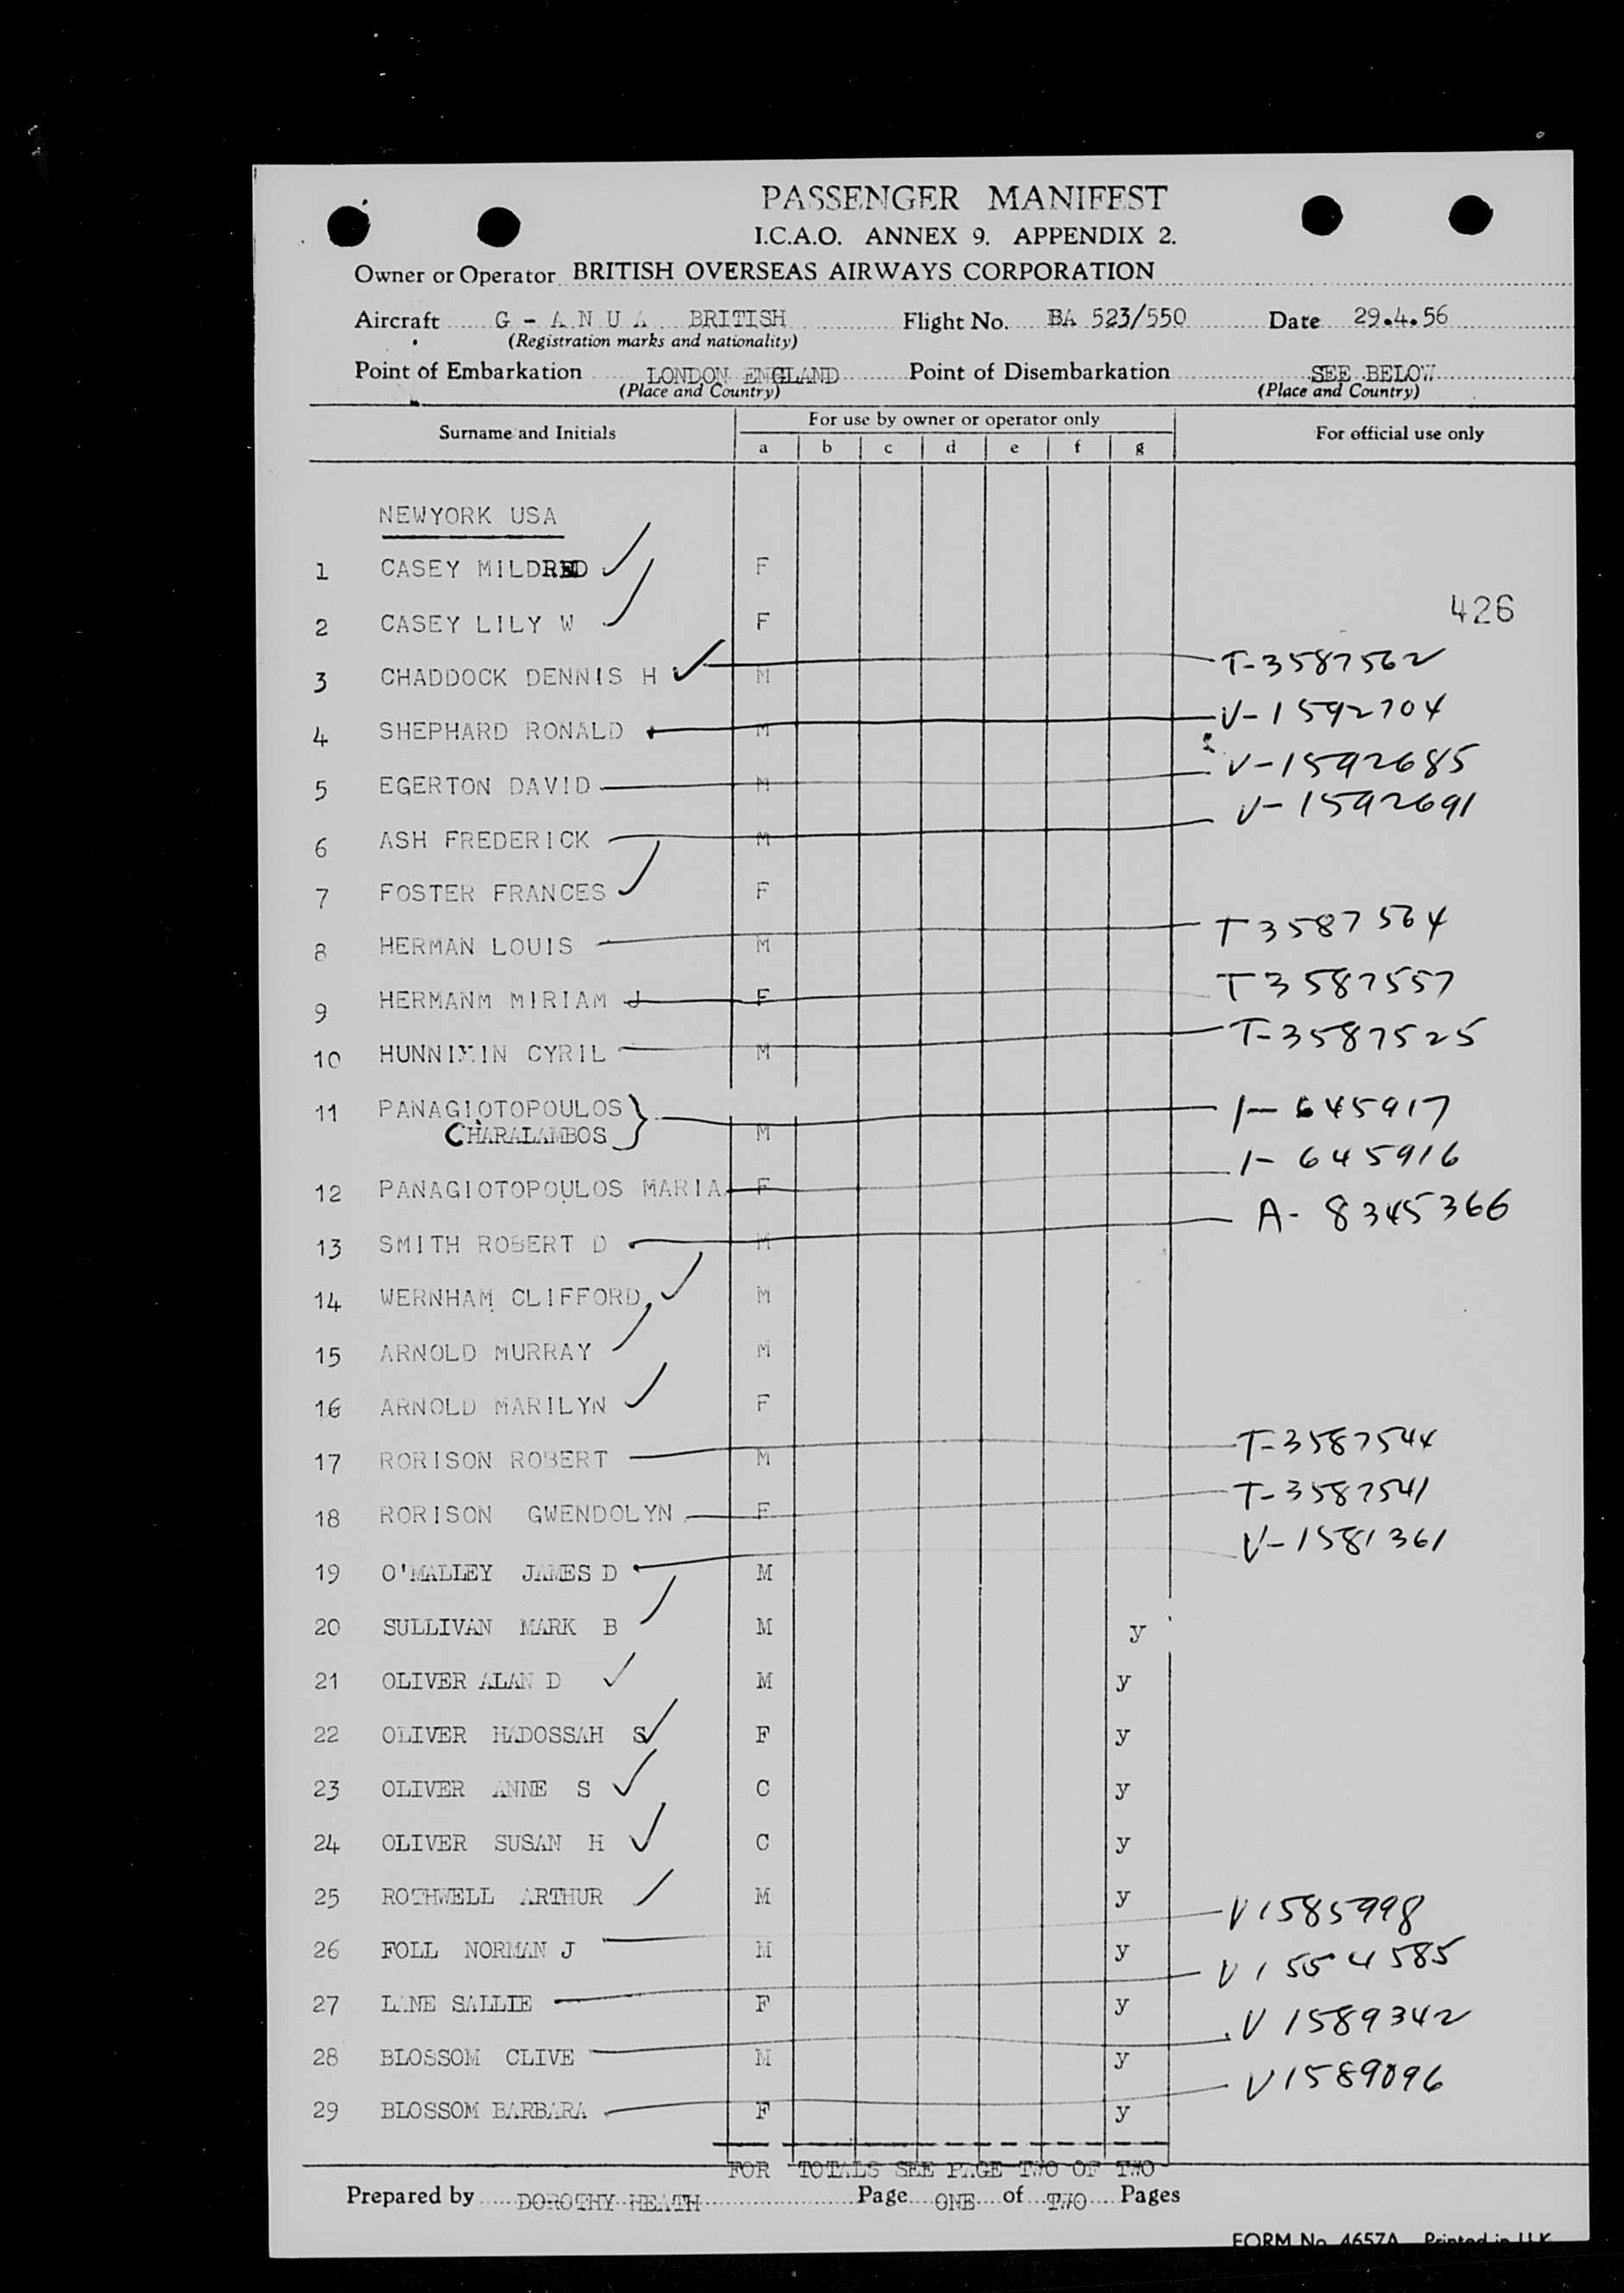 PASSENGER MANIFEST
I.C.A.O. ANNEX 9. APPENDIX 2.
Owner or Operator BRITISH OVERSEAS AIRWAYS CORPORATION
Aircraft G - A N U A BRITISH Flight No. BA 523/550 Date 29.4.56
(Registration marks and nationality)
Point of Embarkation LONDON ENGLAND Point of Disembarkation SEE BELOW
(Place and Country) (Place and Country)
Surname and Initials For use by owner or operator only For official use only
a b c d e f g
NEWYORK USA
1 CASEY MILDRED F
426
2 CASEY LILY W F
3 CHADDOCK DENNIS H M T-3587562
4 SHEPHARD RONALD M V-1592704
5 EGERTON DAVID M V-1592685
6 ASH FREDERICK M V-1592691
7 FOSTER FRANCES F
8 HERMAN LOUIS M T3587564
9 HERMANM MIRIAM J F T3587557
10 HUNNI IN CYRIL M T-3587525
11 PANAGIOTOPOULOS 1-645917
CHARALAMBOS M
12 PANAGIOTOPOULOS MARIA F 1-645916
13 SMITH ROBERT D M A-8345366
14 WERNHAM CLIFFORD M
15 ARNOLD MURRAY M
16 ARNOLD MARILYN F
17 RORISON ROBERT M T-3587544
18 RORISON GWENDOLYN F T-3587541
19 O'MALLEY JAMES D M V-1581361
20 SULLIVAN MARK B M y
21 OLIVER ALAN D M y
22 OLIVER HADOSSAH S F y
23 OLIVER ANNE S C y
24 OLIVER SUSAN H C y
25 ROTHWELL ARTHUR M y
26 FOLL NORMAN J M y V1585998
27 LANE SALLIE F y V1554585
28 BLOSSOM CLIVE M y V1589342
29 BLOSSOM BARBARA F y V1589096
FOR TOTALS SEE PAGE TWO OF TWO
Prepared by DOROTHY HEATH Page ONE of TWO Pages
FORM No. 4657A Printed in U.K.